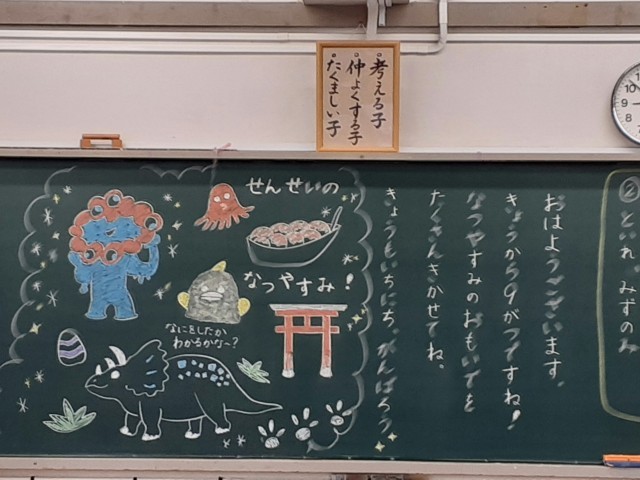 考える子
仲よくする子
たくましい子
②といれ、みずのみ
おはようございます。
きょうから9がつですね!
なつやすみのおもいでを
たくさんきかせてね。
きょうもいちにち、がんばろう。
せんせいの
なつやすみ!
なにをしたか
わかるかな~?
10
9
8